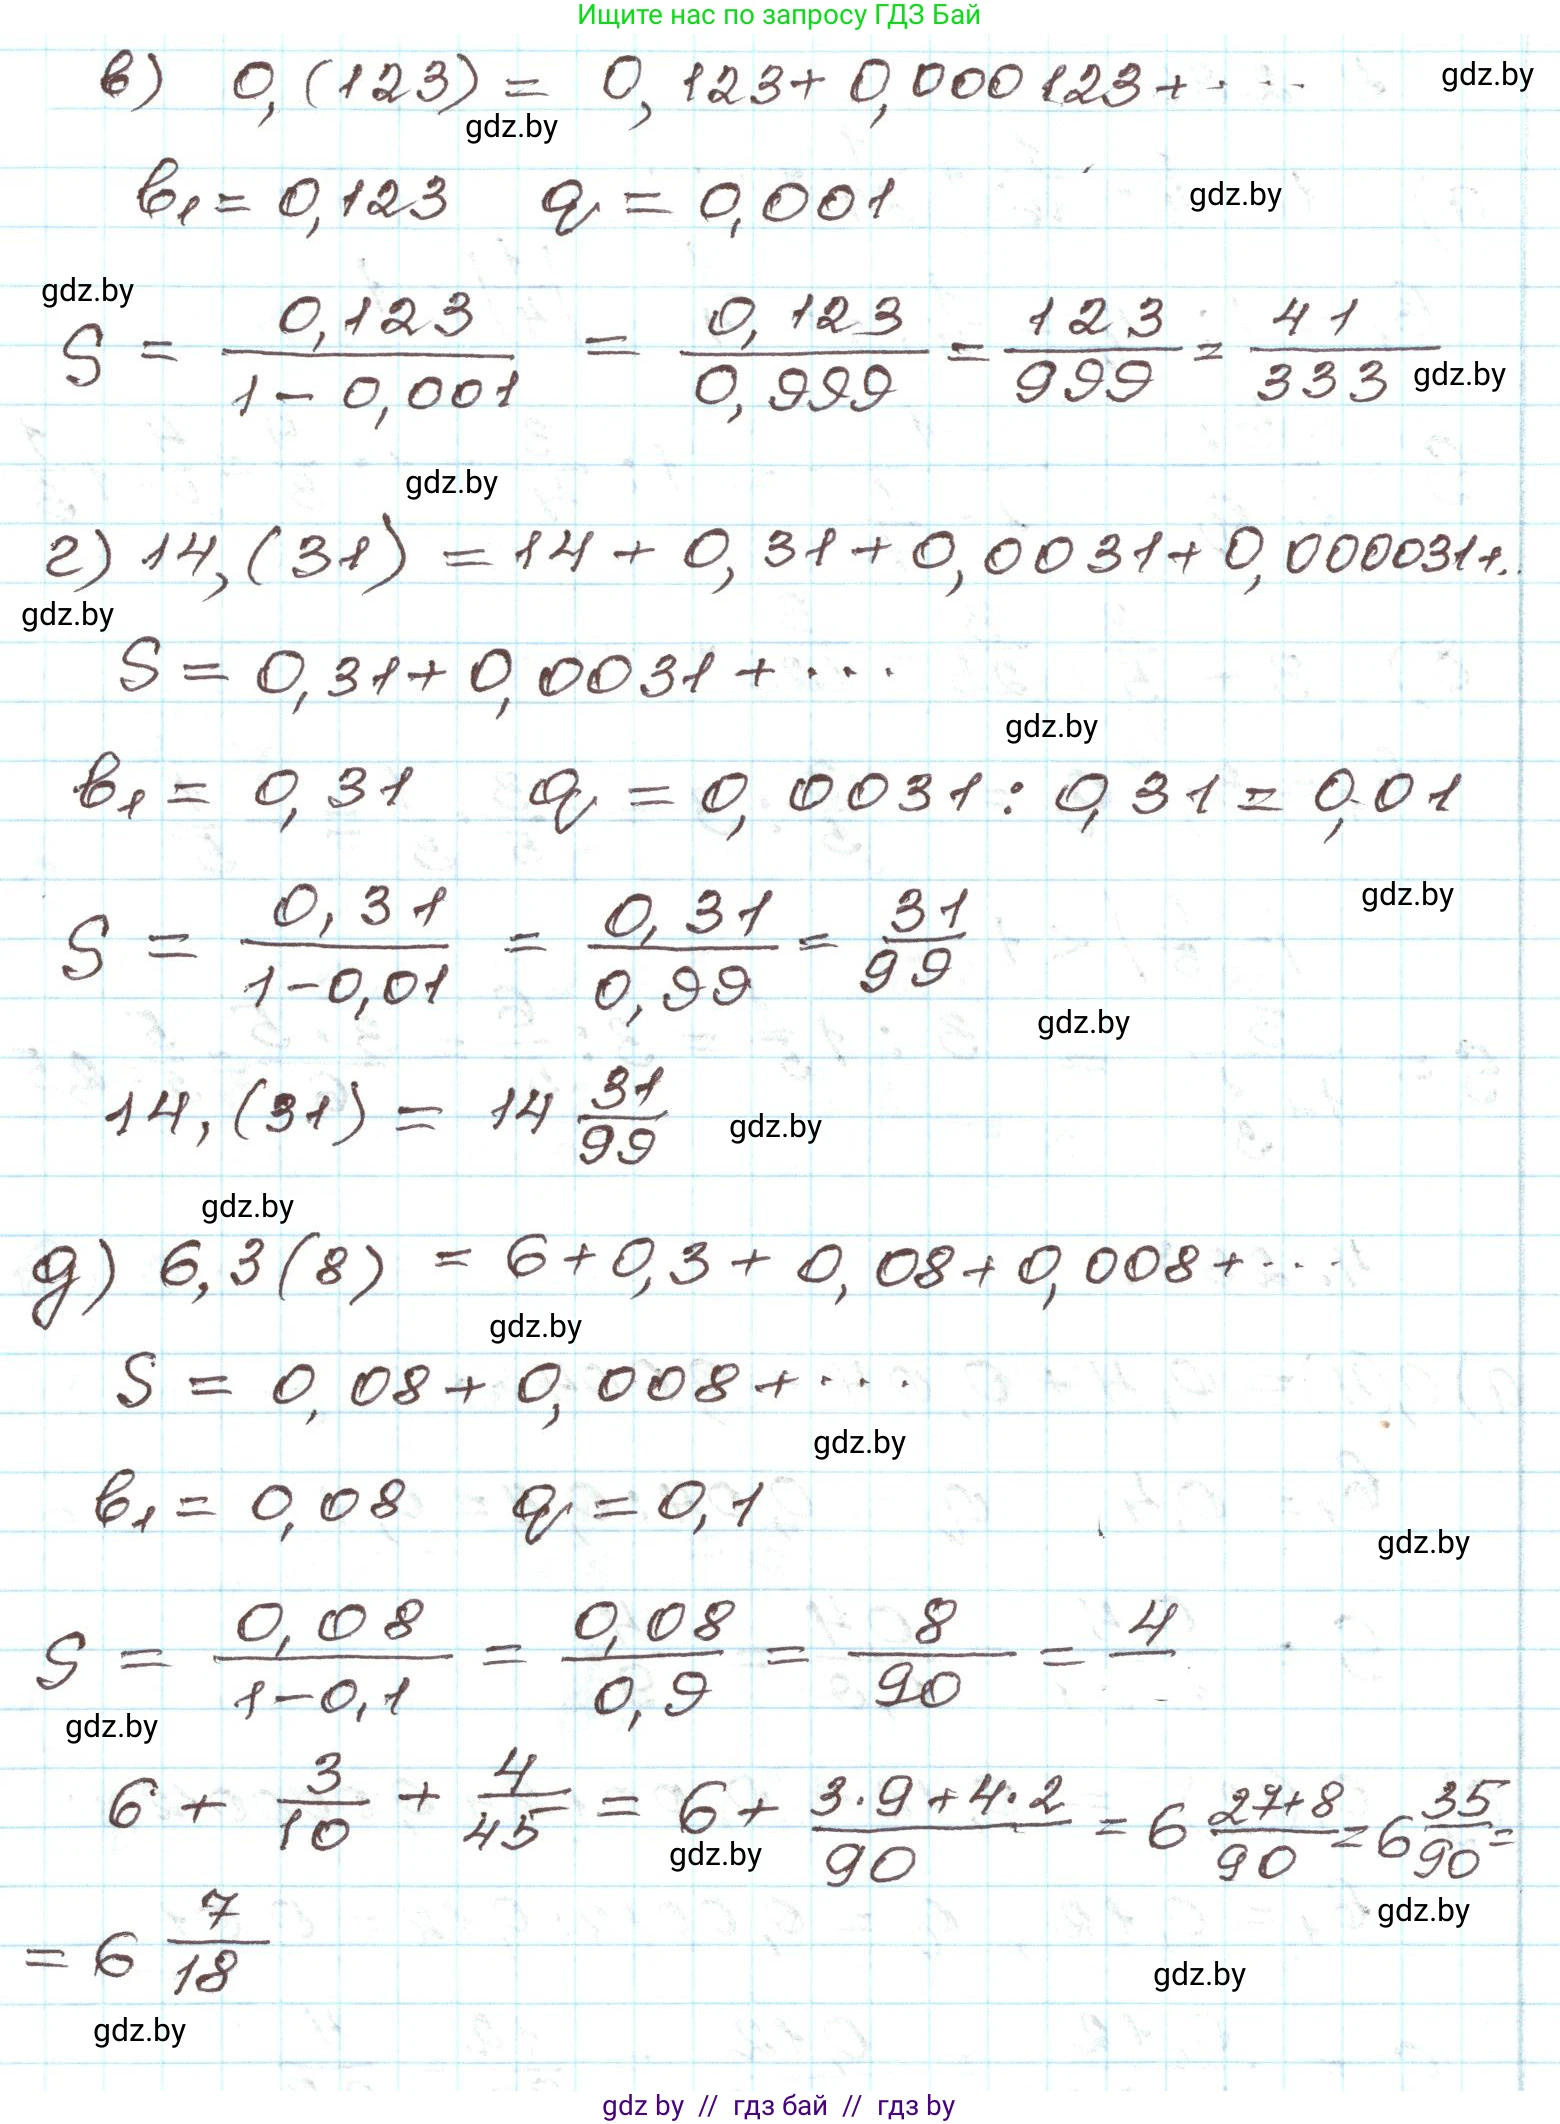 Ищите нас по запросу ГДЗ Бай
в) 0,(123) = 0,123 + 0,000123 + ...
gdz.by
gdz.by
b₁ = 0,123 q = 0,001
gdz.by
gdz.by
S = 0,123/(1-0,001) = 0,123/0,999 = 123/999 = 41/333
gdz.by
gdz.by
г) 14,(31) = 14 + 0,31 + 0,0031 + 0,000031 + ..
gdz.by
S = 0,31 + 0,0031 + ...
gdz.by
b₁ = 0,31 q = 0,0031 : 0,31 = 0,01
gdz.by
S = 0,31/(1-0,01) = 0,31/0,99 = 31/99
gdz.by
14,(31) = 14 31/99
gdz.by
gdz.by
д) 6,3(8) = 6 + 0,3 + 0,08 + 0,008 + ...
gdz.by
S = 0,08 + 0,008 + ...
gdz.by
b₁ = 0,08 q = 0,1
gdz.by
S = 0,08/(1-0,1) = 0,08/0,9 = 8/90 = 4/
gdz.by
6 + 3/10 + 4/45 = 6 + (3·9+4·2)/90 = 6 (27+8)/90 = 6 35/90 =
gdz.by
gdz.by
= 6 7/18
gdz.by
gdz.by
gdz by // гдз бай // гдз by